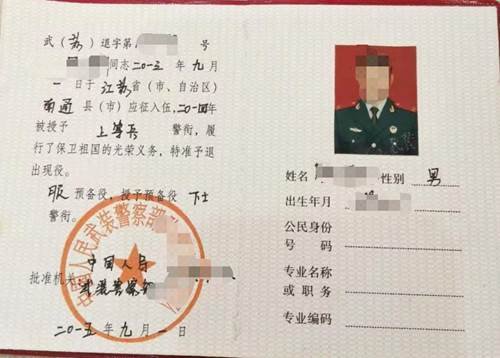 武（苏）退字第 号
同志二〇一三年九月
一日于江苏省（市、自治区）
南通县（市）应征入伍，二〇一四年
被授予上等兵警衔，履
行了保卫祖国的光荣义务，特准予退
出现役。
服预备役，授予预备役下士
警衔。
批准机关
中国人民
武装警察部
中国人民武装警察部
二〇一五年九月一日
姓名 性别 男
出生年月
公民身份
号码
专业名称
或职务
专业编码